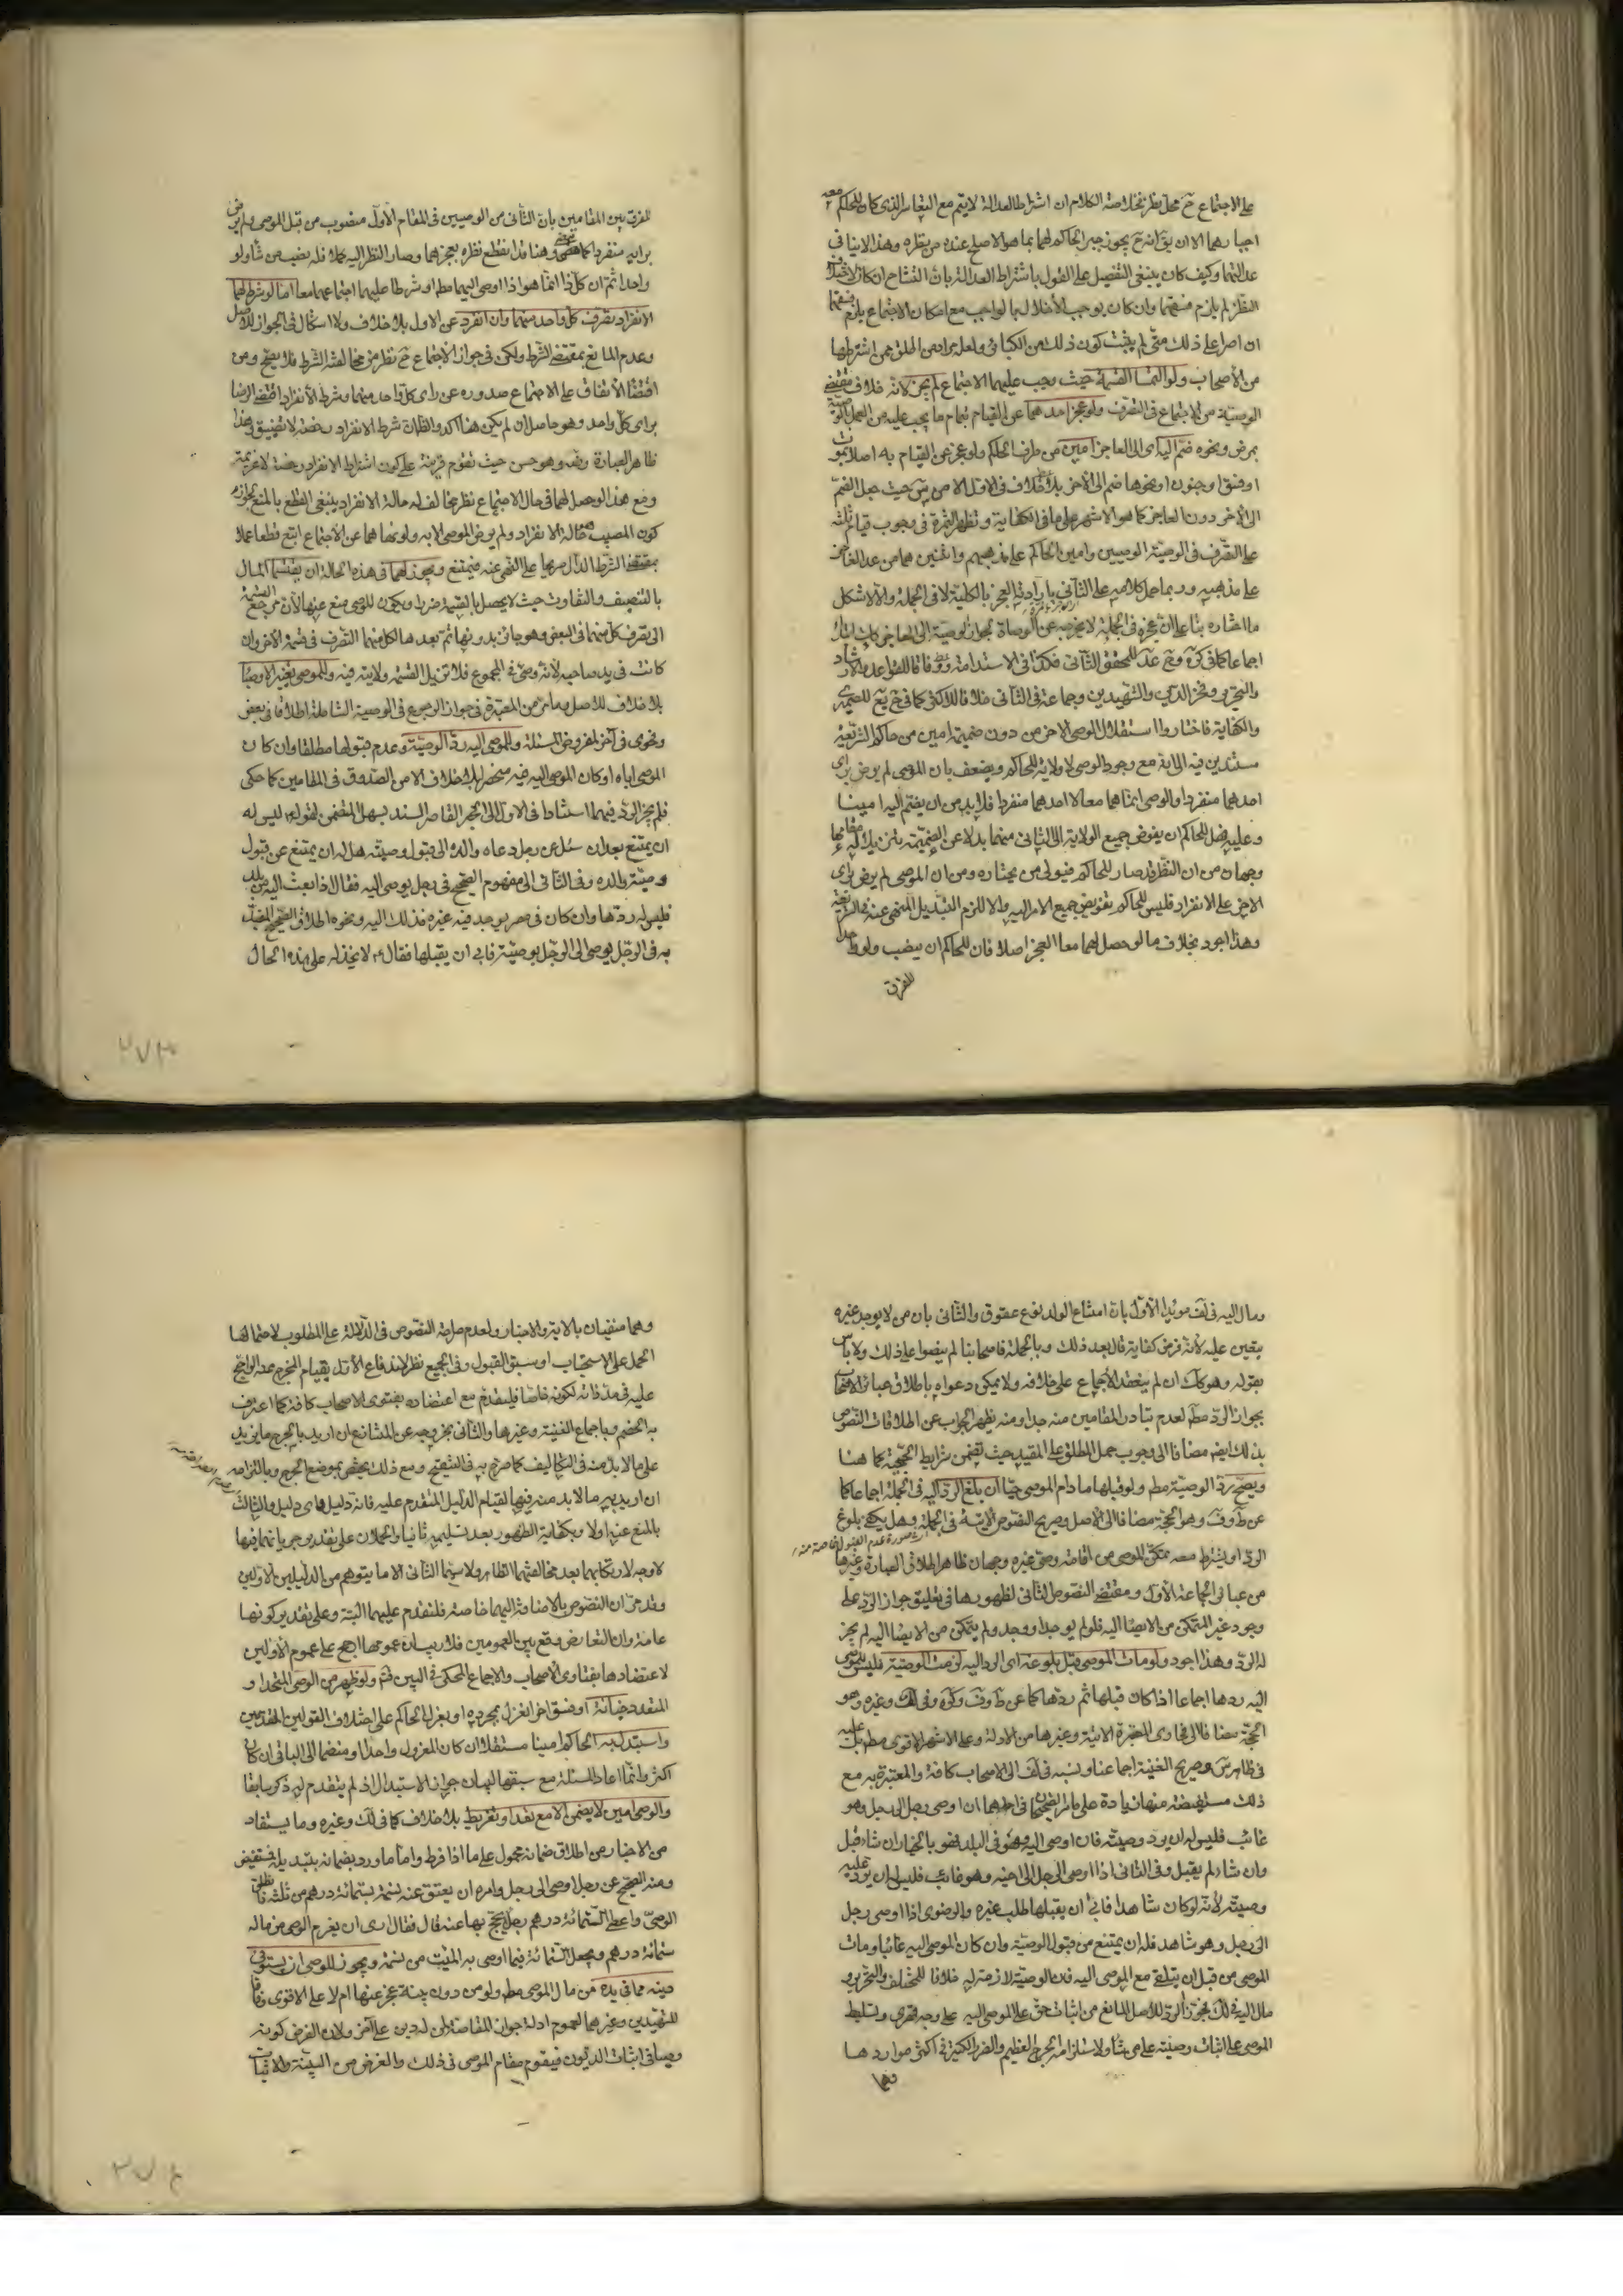 على الاجتماع ح محل نظر بخلاصة الكلام ان اشتراط العدالة لا يتم مع التعاسر الذى كان للحاكم معه
اجبارهما الا ان يق انه ح يجوز جبر الحاكم لهما بما هو الاصلح عنده من نظره وهذا لا ينافى
عدالتهما وكيف كان ينبغى التفصيل على القول باشتراط العدالة بان التشاح ان كان لاختلاف
النظر لم يلزم منه فسقهما وان كان يوجب الأخلال بالواجب مع امكان الاجتماع يلزم فسقهما
ان اصرا على ذلك متى لم يثبت كون ذلك من الكبائر ولعله مراد من اطلق ممن اشترطها
من الأصحاب ولو التمسا القسمة حيث وجب عليهما الاجتماع لم يجز لانه خلاف مقتضى
الوصيّة من الاجتماع فى التصرف ولو عجز احدهما عن القيام بتمام ما يجب عليه من العمل بالوصيّة
بمرض ونحوه ضم اليه اى الى العاجز امين من طرف الحاكم ولو عجز عن القيام به اصلا بموت
او فسق او جنون او نحوها ضم الى الآخر بلا خلاف فى الاول الا من س حيث جعل الضمّ
الى الآخر دون العاجز كما هو الاشهر على ما فى الكفاية وتظهر الثمرة فى وجوب قيام ثلثة
على التصرف فى الوصيّة الوصيين وامين الحاكم على مذهبهم واثنين هما من عدا العاجز
على مذهبه وربما حمل كلامه على الثانى بارادة العجز بالكلية لا فى الجملة والا لاشكل
ما اختاره بناء على ان عجزه فى الجملة لا يخرجه عن الوصاة لجواز الوصيّة الى العاجز كك ابتداء
اجماعا كما فى كره وعن المحقق الثانى فكذا فى الاستدامة وفاقا للقواعد والارشاد
والتحرير وفخر الدين والشهيدين وجماعة فى الثانى خلافا للاكثر كما فى ح يع للصيمرى
والكفاية فاختاروا استقلال الوصى الآخر من دون ضميمة امين من حاكم الشريعة
مستندين فيه الى انه مع وجود الوصى لا ولاية للحاكم ويضعف بان الموصى لم يرض براى
احدهما منفردا والوصى انما هما معا لا احدهما منفردا فلا بد من ان يضم اليه امينا
وعليه فهل للحاكم ان يفوض جميع الولاية الى الثانى منهما بدلا عن الضميمة
وجهان من ان النظر قد صار للحاكم فيولى من يختاره ومن ان الموصى لم يرض براى
الآخر على الانفراد فليس للحاكم تفويض جميع الامر اليه والا للزم التبديل المنهى عنه فى الشريعة
وهذا اجود بخلاف ما لو حصل لهما معا العجز اصلا فان للحاكم ان ينصب ولو واحدا
للفرق
للفرق بين المقامين بان الثانى من الوصيين فى المقام الاول منصوب من قبل الموصى ولم يرض
برايه منفردا كما مضى وهنا قد انقطع نظره بعجزهما وصار النظر اليه كملا فله نصب من شاء ولو
واحدا ثم ان كل ذا انما هو اذا اوصى اليهما مط او شرط عليهما اجتماعهما معا اما لو شرط لهما
الانفراد تصرف كل واحد منهما وان انفرد عن الاول بلا خلاف ولا اشكال فى الجواز للاصل
وعدم المانع بمقتضى الشرط ولكن فى جواز الاجتماع ح نظر من مخالفته الشرط فلا يصح ومن
اقتضاء الاتفاق على الاجتماع صدوره عن راى كل واحد منهما وشرط الانفراد اقتضى الرضا
براى كل واحد وهو حاصل ان لم يكن هنا آكد والظان شرط الانفراد رخصة لا تضييق وهذا
ظاهر العبارة وهو حسن حيث تقوم قرينة على كون اشتراط الانفراد رخصة لا عزيمة
ومع هذا لو حصل لهما فى حال الاجتماع نظر مخالف له حالة الانفراد ينبغى القطع بالمنع لجواز
كون المصيب حالة الانفراد ولم يرض الموصى الا به ولو نهاهما عن الاجتماع اتبع قطعا عملا
بمقتضى الشرط الدال صريحا على النهى عنه فيمتنع ويجوز لهما فى هذه الحالة ان يقتسما المال
بالتنصيف والتفاوت حيث لا يحصل بالقسمة ضررا ويكون للوصى منع عنها لأن مرجع القسمة
الى تصرف كل منهما فى البعض وهو جائز بدونها ثم بعدها لكل منهما التصرف فى قسمة الآخر وان
كانت فى يد صاحبه لانه وصى فى المجموع فلا تزيل القسمة ولايته فيه وللموصى تغيير الاوصياء
بلا خلاف للاصل وما مر من المعتبرة فى جواز الرجوع فى الوصية الشاملة اطلاقا فى بعض
وفحوى فى آخر لمفروض المسئلة وللموصى اليه ردّ الوصيّة وعدم قبولها مطلقا وان كان
الموصى اباه او كان الموصى اليه فيه منحصرا بلا خلاف الا من الصدوق فى المقامين كما حكى
فلم يجز الردّ فيهما استنادا فى الاول الى الخبر القاصر السند بسهل المتضمن لقوله ع ليس له
ان يمتنع بعد ان سئل عن رجل دعاه والده الى قبول وصيته هل له ان يمتنع عن قبول
وصيّة والده وفى الثانى الى مفهوم الصحيح فى رجل يوصى اليه فقال اذا بعث اليه من بلد
فليس له ردّها وان كان فى مصر يوجد فيه غيره فذلك اليه ونحوه اطلاق الصحيح المقيد
به فى الرجل يوصى الى الرجل بوصيّة فابى ان يقبلها فقال ع لا يخذله على هذه الحال
٣٧٣
ومال اليه فى لف مؤيدا الاول بان امتناع الولد نوع عقوق والثانى بان من لا يوجد غيره
يتعين عليه لأنه فرض كفاية قال بعد ذلك وبالجملة فاصحابنا لم ينصوا على ذلك ولا بأس
بقوله وهو كك ان لم ينعقد الاجماع على خلافه ولا يمكن دعواه باطلاق عبائر الاصحاب
بجواز الردّ مط لعدم تبادر المقامين منه جدا ومنه يظهر الجواب عن اطلاقات النصوص
بذلك ايض مضافا الى وجوب حمل المطلق على المقيد حيث يتضمن شرايط الحجية كما هنا
ويصح ردّ الوصيّة مط ولو قبلها ما دام الموصى حيّا ان بلغ الردّ اليه فى الجملة اجماعا كما
عن ط وف وهو الحجة مضافا الى الاصل وصريح النصوص الآتية فى الجملة وهل يكفى بلوغ
الردّ او يشترط معه تمكن الموصى من اقامة وصى غيره وجهان ظاهر اطلاق العبارة وغيرها
من عبائر الجماعة الاول ومقتضى النصوص الثانى لظهورها فى تعليق جواز الرد على
وجود غير المتمكن من الايصاء اليه فلو لم يوجد او وجد ولم يتمكن من الايصاء اليه لم يجز
له الردّ وهذا اجود ولو مات الموصى قبل بلوغه اى الرد اليه لزمت الوصيّة فليس للموصى
اليه ردها اجماعا اذا كان قبلها ثم ردّها كما عن ط وف وكره وفى لك وغيره وهو
الحجّة مضافا الى فحاوى المعتبرة الآتية وغيرها من الادلة وعلى الاشهر الاقوى مط بل عليه
فى ظاهر س وصريح الغنية اجماعنا ونسبه فى لف الى الاصحاب كافة والمعتبرة به مع
ذلك مستفيضة منها زيادة على ما مر الصحيحان فى احدهما ان اوصى رجل الى رجل وهو
غائب فليس له ان يرد وصيته فان اوصى اليه وهو فى البلد فهو بالخيار ان شاء قبل
وان شاء لم يقبل وفى الثانى اذا اوصى الرجل الى اخيه وهو غائب فليس له ان يرد عليه
وصيته لانه لو كان شاهدا فابى ان يقبلها طلب غيره والرضوى اذا اوصى رجل
الى رجل وهو شاهد فله ان يمتنع من قبول الوصيّة وان كان الموصى اليه غائبا ومات
الموصى من قبل ان يلتقى مع الموصى اليه فان الوصيّة لازمة له خلافا للمختلف والتحرير و
مال اليه فى لك فجوزا الردّ للاصل المانع من اثبات حق على الموصى اليه على وجه قهرى وتسليط
الموصى على اثبات وصيته على من شاء ولاستلزامه الحرج العظيم والضرر الكثير فى اكثر مواردها
وهما
وهما منفيان بالآية والاخبار ولعدم صراحة النصوص فى الدلالة على المطلوب لاحتمالها
الحمل على الاستحباب او سبق القبول وفى الجميع نظر لاندفاع الاول بقيام المخرج عنه الواجح
عليه فى حد ذاته لكونه خاصا فليقدم مع اعتضاده بفتوى الاصحاب كافة كما اعترف
به الخصم وباجماع الغنية وغيرها والثانى بخروجه عن المتنازع ان اريد بالحرج ما يزيد
على ما لا بد منه فى التكاليف كما صرح به فى التنقيح ومع ذلك يختص بموضع الحرج وبالتزامه
ان اريد به ما لا بد منه فيها لقيام الدليل المتقدم عليه فانه دليل واى دليل والثالث
بالمنع عنه اولا وبكفاية الظهور بعد تسليمه ثانيا والحملان على تقدير جريانهما فيها
لا وجه لارتكابهما بعد مخالفتهما الظاهر ولا سيما الثانى الا ما يتوهم من الدليلين الاولين
وقد مر ان النصوص بالاضافة اليهما خاصة فلتقدم عليهما البتة وعلى تقدير كونها
عامة وان التعارض وقع بين العمومين فلا ريب ان عمومها ارجح على عموم الاولين
لاعتضادها بفتاوى الاصحاب والاجماع المحكى فى البين فتم ولو ظهر من الوصى المتحد او
المتعدد خيانة او فسق اخر انعزل بمجرده او يعزله الحاكم على اختلاف القولين المتقدمين
واستبدل به الحاكم امينا مستقلا ان كان المعزول واحدا ومنضما الى الباقى ان كان
اكثر وانما اعاد المسئلة مع سبقها لبيان جواز الاستبدال اذ لم يتقدم له ذكر سابقا
والوصى امين لا يضمن الا مع تعد او تفريط بلا خلاف كما فى لك وغيره وما يستفاد
من الاخبار من اطلاق ضمانه محمول على ما اذا فرط واما ما ورد بضمانه بتبديله فمستفيض
ومنه الصحيح عن رجل اوصى الى رجل وامره ان يعتق عنه نسمة بستمائة درهم من ثلثه فانطلق
الوصى واعطى الستمائة درهم رجلا يحج بها عنه قال فقال ارى ان يغرم الوصى من ماله
ستمائة درهم ويجعل الستمائة فيما اوصى به الميت من نسمة ويجوز للوصى ان يستوفى
دينه مما فى يده من مال الموصى مط ولو من دون بينة عجز عنها ام لا على الاقوى وفاقا
للشهيدين وغيرهما لعموم ادلة جواز المقاصة لمن له دين على آخر ولان الغرض كونه
وصيا فى اثبات الديون فيقوم مقام الموصى فى ذلك والغرض من البينة والاثبات
٣٧٤